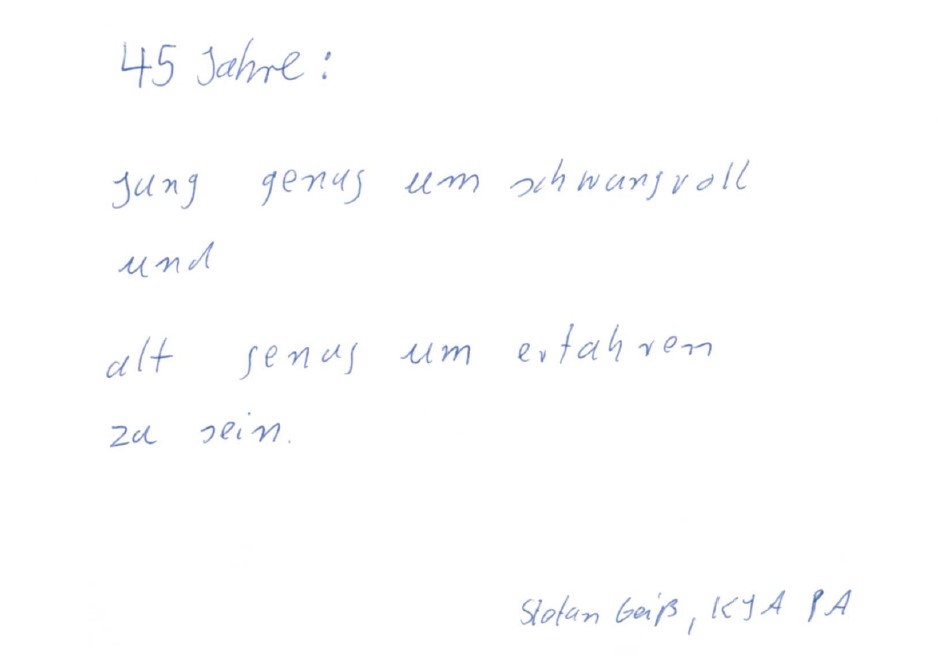 45 Jahre:
jung genug um schwungvoll
und
alt genug um erfahren
zu sein.
Stefan Geiß, KJA PA